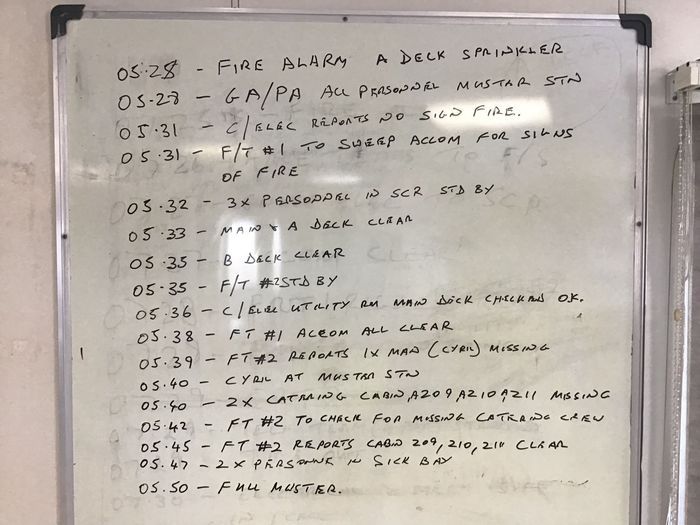 05.28 - FIRE ALARM A DECK SPRINKLER
05.28 - GA/PA ALL PERSONNEL MUSTAR STN
05.31 - C/ELEC REPORTS NO SIGN FIRE.
05.31 - F/T #1 TO SWEEP ACCOM FOR SIGNS
OF FIRE
05.32 - 3X PERSONNEL IN SCR STD BY
05.33 - MAIN & A DECK CLEAR
05.35 - B DECK CLEAR
05.35 - F/T #2 STD BY
05.36 - C/ELEC UTILITY RM MAIN DECK CHECKED OK.
05.38 - FT #1 ACCOM ALL CLEAR
05.39 - FT #2 REPORTS 1X MAN (CYRIL) MISSING
05.40 - CYRIL AT MUSTER STN
05.40 - 2X CATERING CABIN, A209 A210 A211 MISSING
05.42 - FT #2 TO CHECK FOR MISSING CATERING CREW
05.45 - FT #2 REPORTS CABIN 209, 210, 211 CLEAR
05.47 - 2X PERSONNE IN SICK BAY
05.50 - FULL MUSTER.